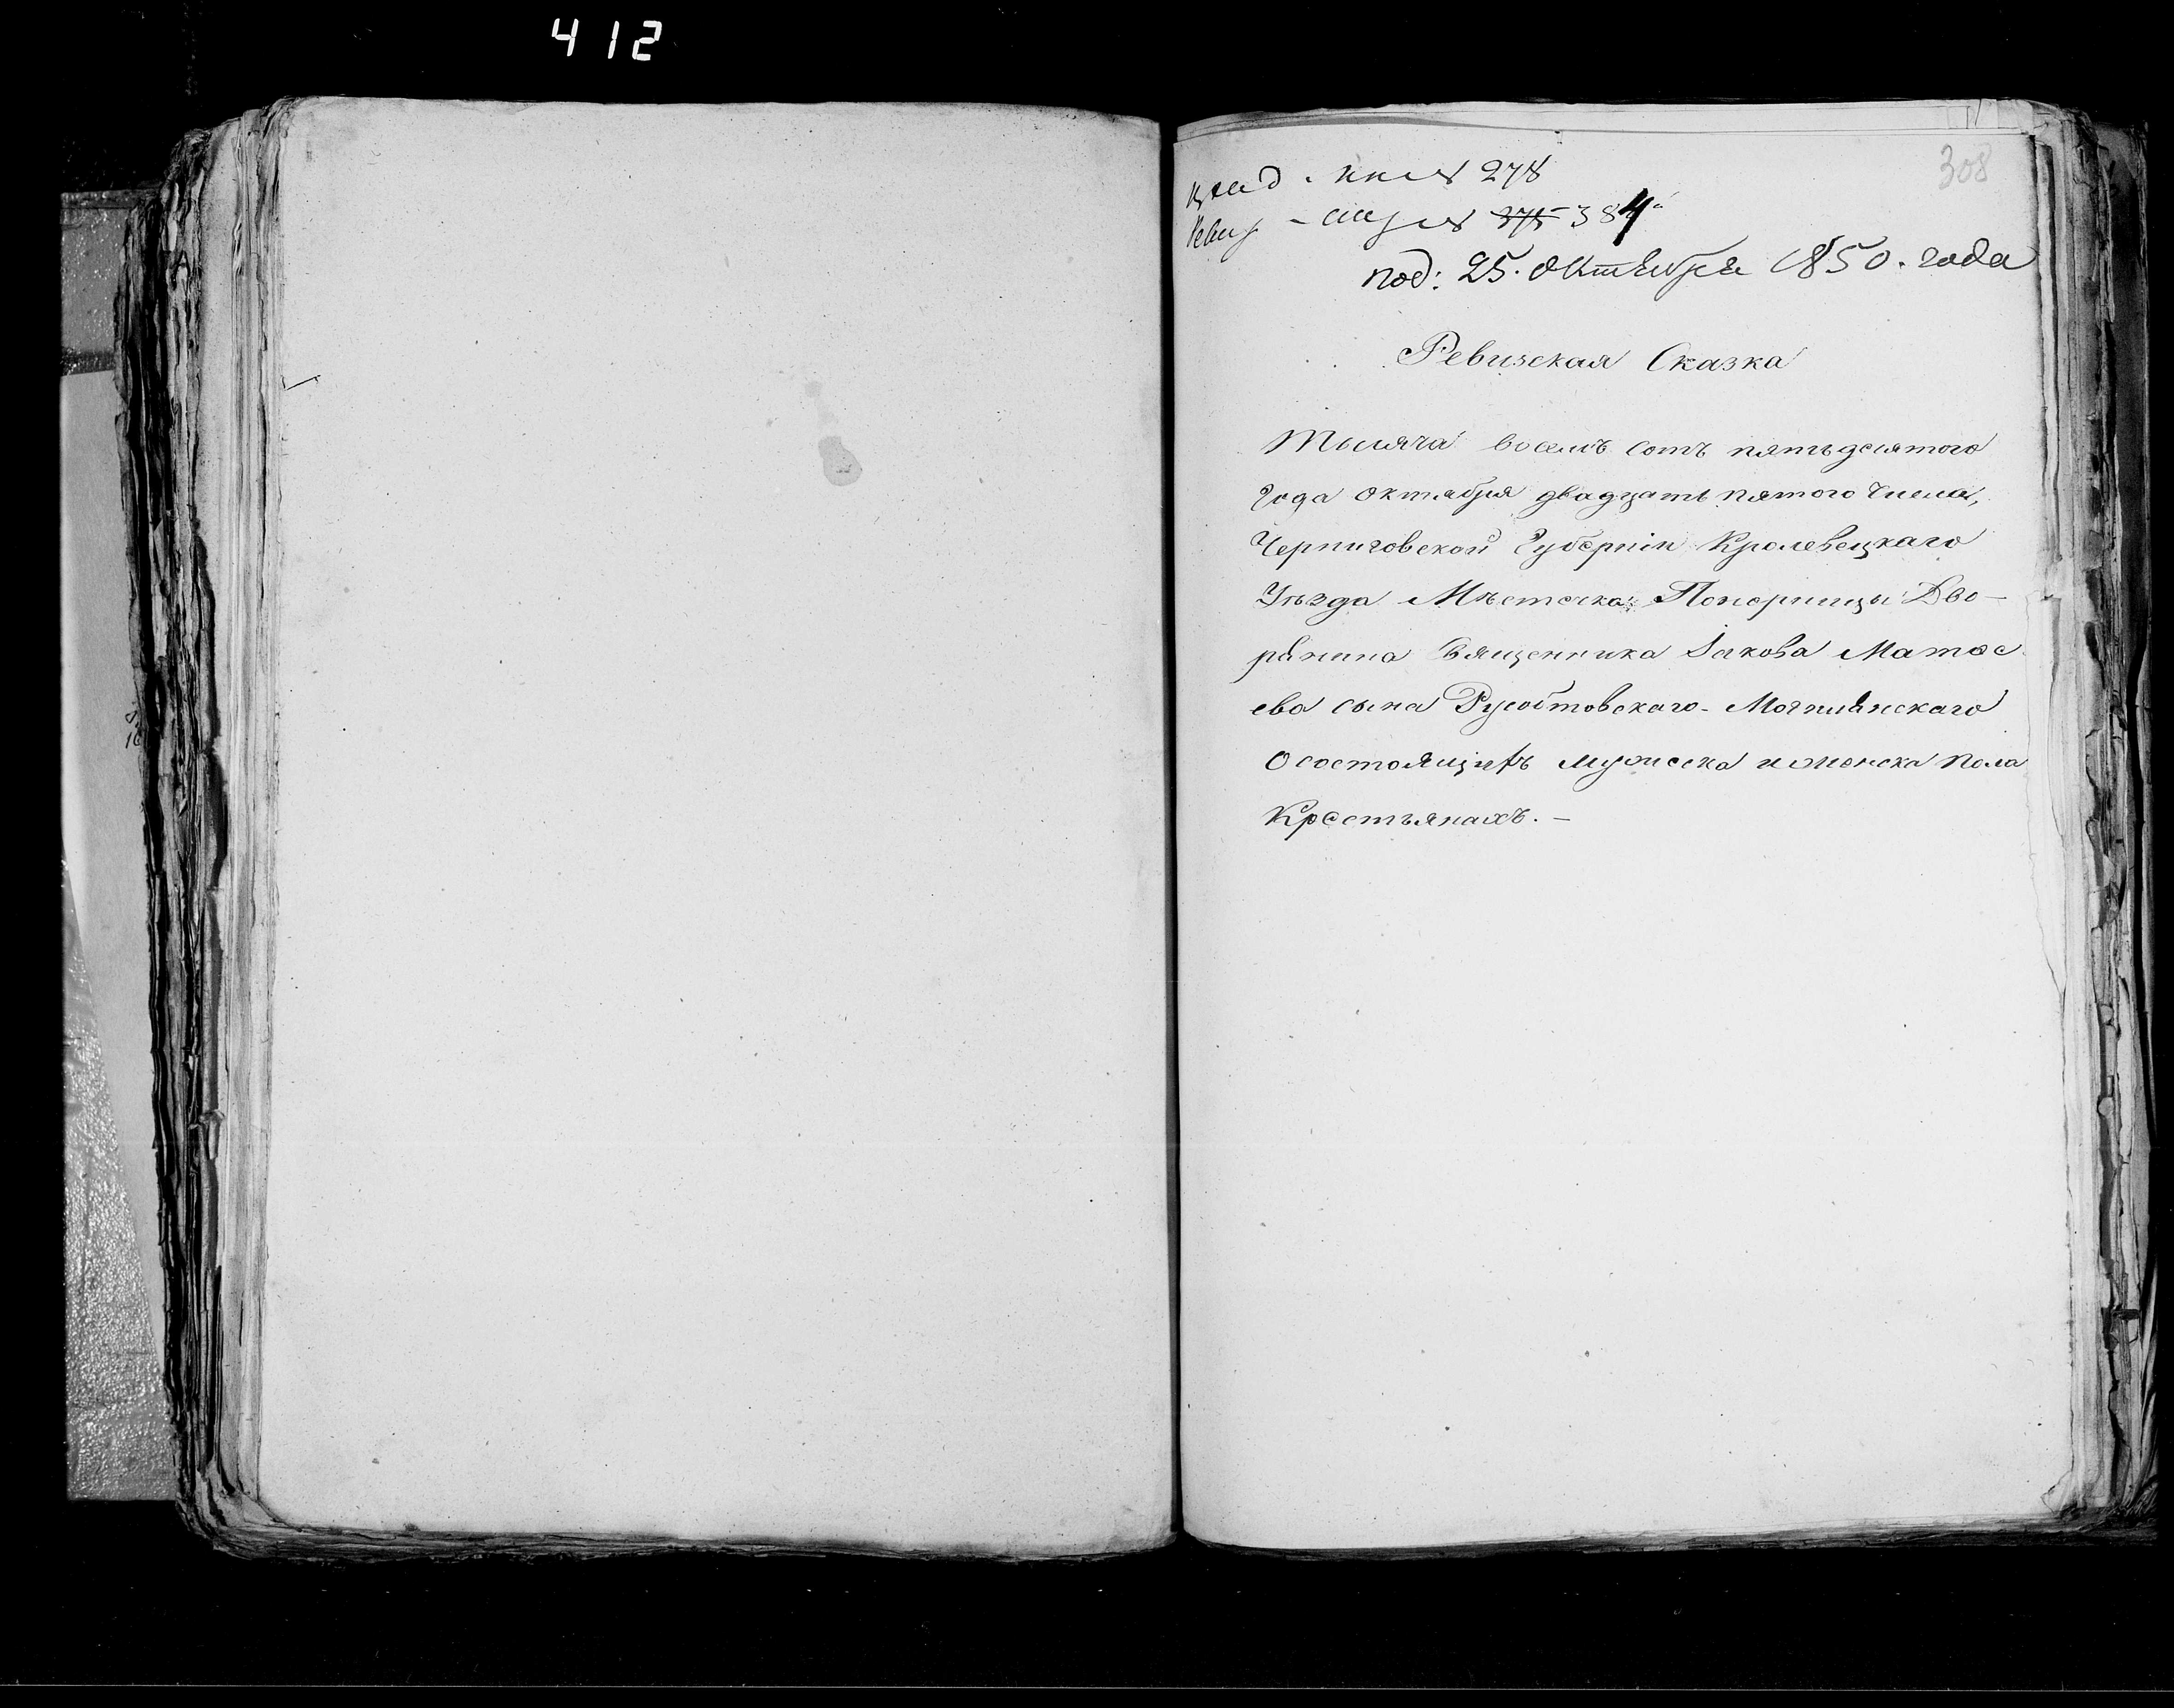 412
308
№ 278
Ревиз - № 375 384
под: 25. Октября 1850. года
Ревизская Сказка
Тысяча восемъ сотъ пятьдесятого
Года октября двадцать пятого Числа,
Черниговской Губерніи Кролевецкаго
Уѣзда Мѣстечка Понорницы Дво-
рянина Священника Іакова Матѳе
ева сына
О состоящихъ мужеска и женска пола
Крестьянахъ. -